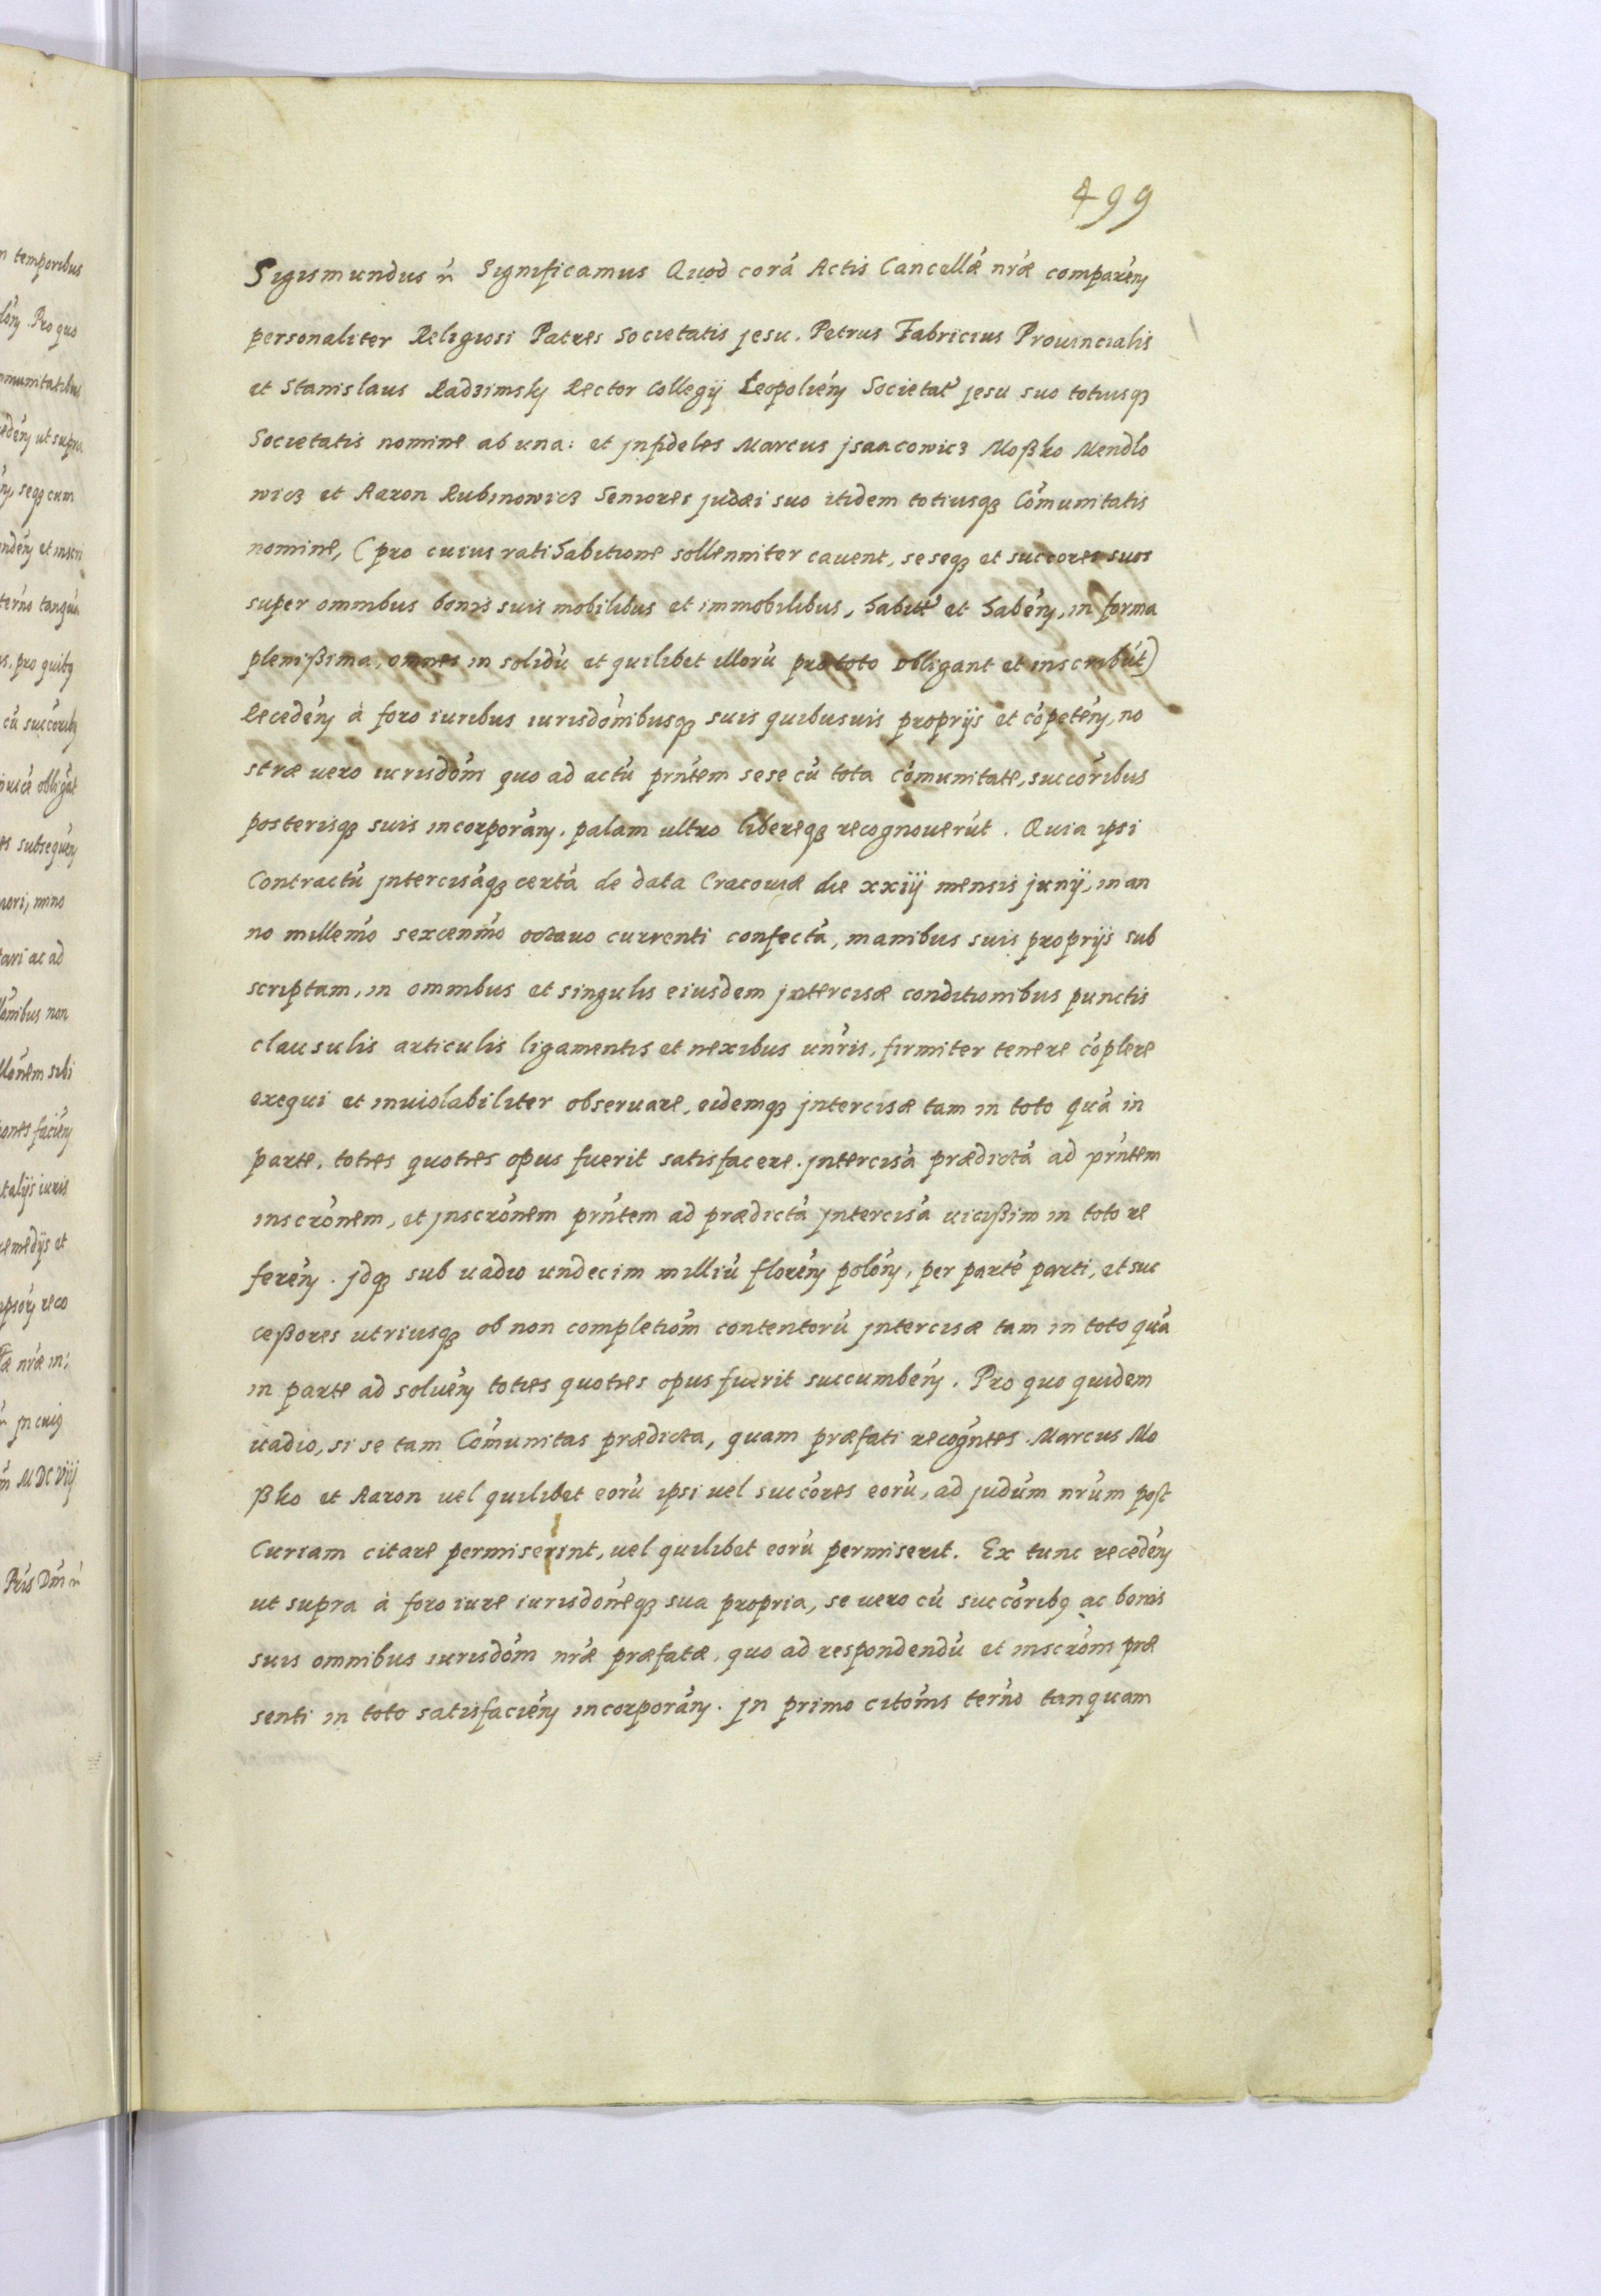 499
Sigismundus ñ Significamus Quod corá Actis Cancellǽ nrǽ comparéń
personaliter Religiosi Patres Societatis jesu. Petrus Fabricius Prouincialis
et Stanislaus Radzimsky Rector Collegij Leopolień Societat' jesu suo totiusq3
Societatis nomine ab una: et jnfideles Marcus jsaacowicz Moßko Mendlo
wicz et Aaron Rubinowicz Seniores judæi suo itidem totiusq3 Cómunitatis
nomine, (pro cuius ratihabitione sollenniter cauent, seseq3 et succores suos
super omnibus bonis suis mobilibus et immobilibus, habit' et habéń, in forma
plenißima, omnes in solidú et quilibet illorú pro toto obligant et inscribút)
Recedéń à foro iuribus iurisdónibusq3 suis quibusuis proprijs et cópetéń, no
stræ uero iurisdóni quo ad actú prńtem sese cú tota cómunitate, succóribus
posterisq3 suis incorporáń. palam ultro libereq3 recognouerút. Quia ipsi
Contractú jntercisáq3 certá de data Cracouiæ die xxiij mensis junij, in an
no millemó sexcenmó octauo currenti confectá, manibus suis proprijs sub
scriptam, in omnibus et singulis eiusdem jntercisæ conditionibus punctis
clausulis articulis ligamentis et nexibus unŕis, firmiter tenere cóplere
exequi et inuiolabiliter obseruare, eidemq3 jntercisæ tam in toto quá in
parte, toties quoties opus fuerit satisfacere. jntercisá prædictá ad prńtem
inscrónem, et jnscrónem prńtem ad prædictá jntercisá uicißim in toto re
feréń. jdq3 sub uadio undecim milliú floréń polóń, per parté parti, et suc
ceßores utriusq3 ob non completióm contentorú jntercisæ tam in toto quá
in parte ad soluéń toties quoties opus fuerit succumbéń. Pro quo quidem
uadio, si se tam Cómunitas prædicta, quam præfati recogńtes Marcus Mo
ßko et Aaron uel quilibet eorú ipsi uel succóres eorú, ad judúm nrúm post
Curiam citare permiserint, uel quilibet eorú permiserit. Ex tunc recedéń
ut supra à foro iure iurisdóneq3 sua propria, se uero cú succórib9 ac bonis
suis omnibus iurisdóni nrǽ præfatæ, quo ad respondendú et inscróni præ
senti in toto satisfaciéń incorporáń. jn primo citónis terńo tanquam